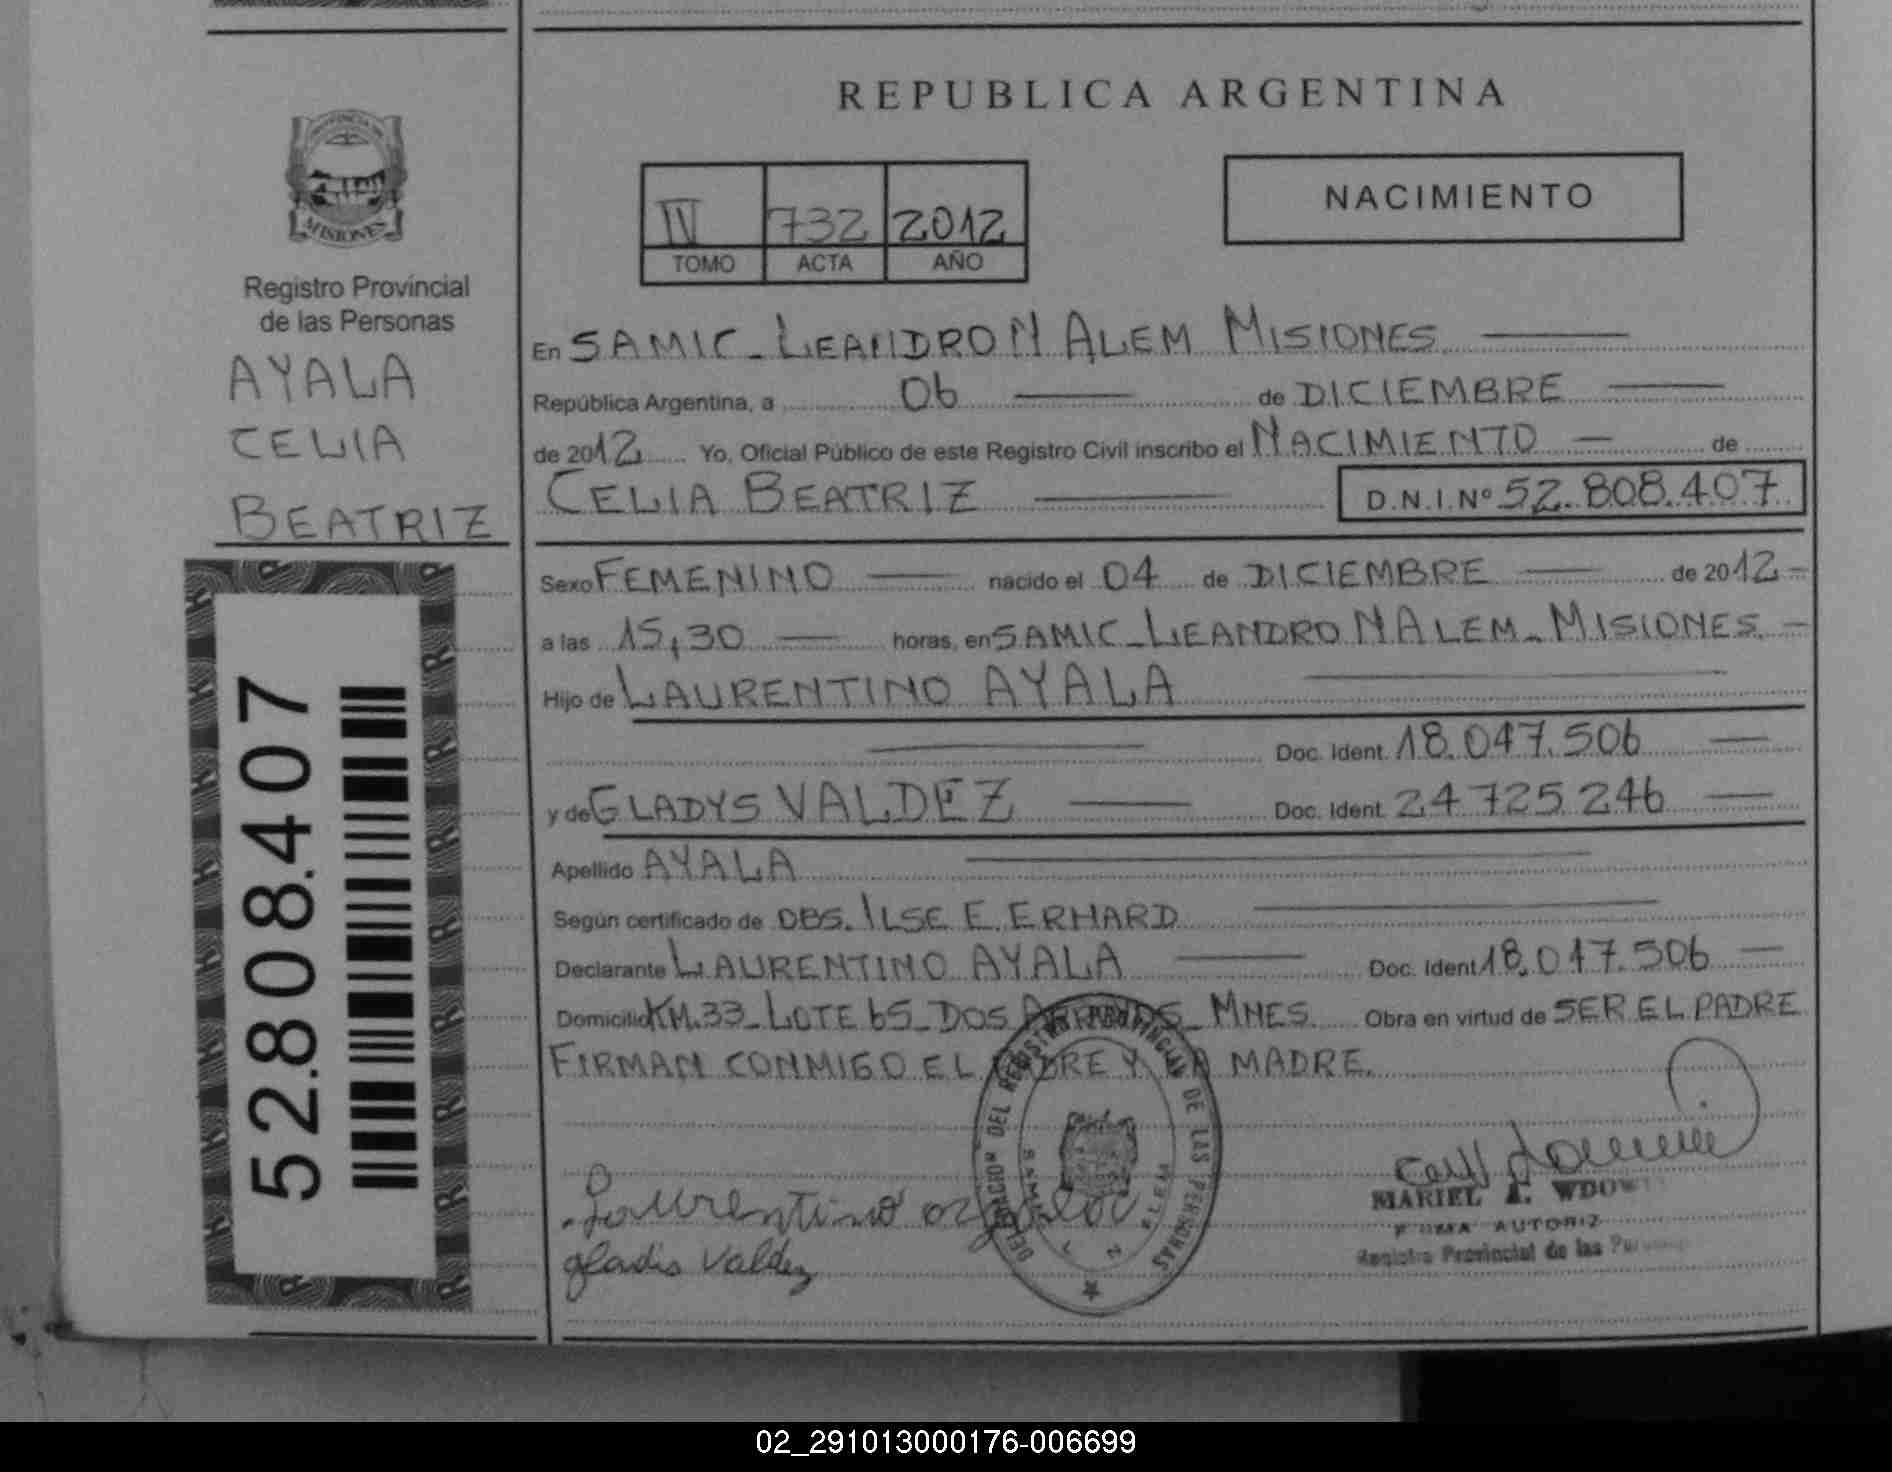 PROVINCIA DE
MISIONES
Registro Provincial
de las Personas
AYALA
CELIA
BEATRIZ
52.808.407
REPUBLICA ARGENTINA
IV 732 2012
TOMO ACTA AÑO
NACIMIENTO
En SAMIC_LEANDRO N ALEM MISIONES
República Argentina, a 06 de DICIEMBRE
de 2012 Yo, Oficial Público de este Registro Civil inscribo el NACIMIENTO de
CELIA BEATRIZ D.N.I.Nº 52.808.407
Sexo FEMENINO nacido el 04 de DICIEMBRE de 2012
a las 15,30 horas, en SAMIC_LEANDRO N ALEM_MISIONES
Hijo de LAURENTINO AYALA
Doc. Ident. 18.047.506
y de GLADYS VALDEZ Doc. Ident. 24.725.246
Apellido AYALA
Según certificado de OBS. ILSE E. ERHARD
Declarante LAURENTINO AYALA Doc. Ident 18.047.506
Domicilio KM.33_LOTE 65_DOS ARROYOS_MNES. Obra en virtud de SER EL PADRE
FIRMAN CONMIGO EL PADRE Y LA MADRE.
DELEGACION DEL REGISTRO PROVINCIAL DE LAS PERSONAS
Laurentino ayala
gladis valdez
MARIEL A.
FIRMA AUTORIZ
Registro Provincial de las
02_291013000176-006699